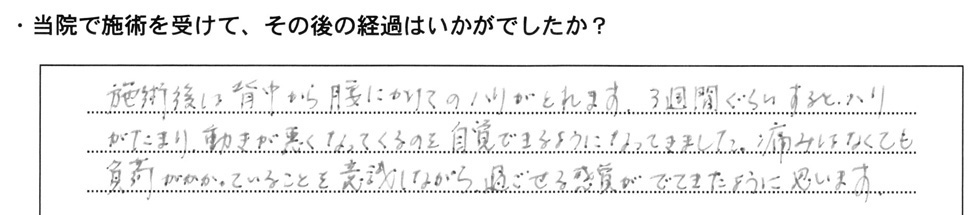 ・当院で施術を受けて、その後の経過はいかがでしたか？
施術後は背中から腰にかけてのハリがとれます。3週間ぐらいすると、ハリ
がたまり動きが悪くなってくるのを自覚できるようになってきました。痛みはなくても
負荷がかかっていることを意識しながら過ごせる感覚がでてきたように思います。